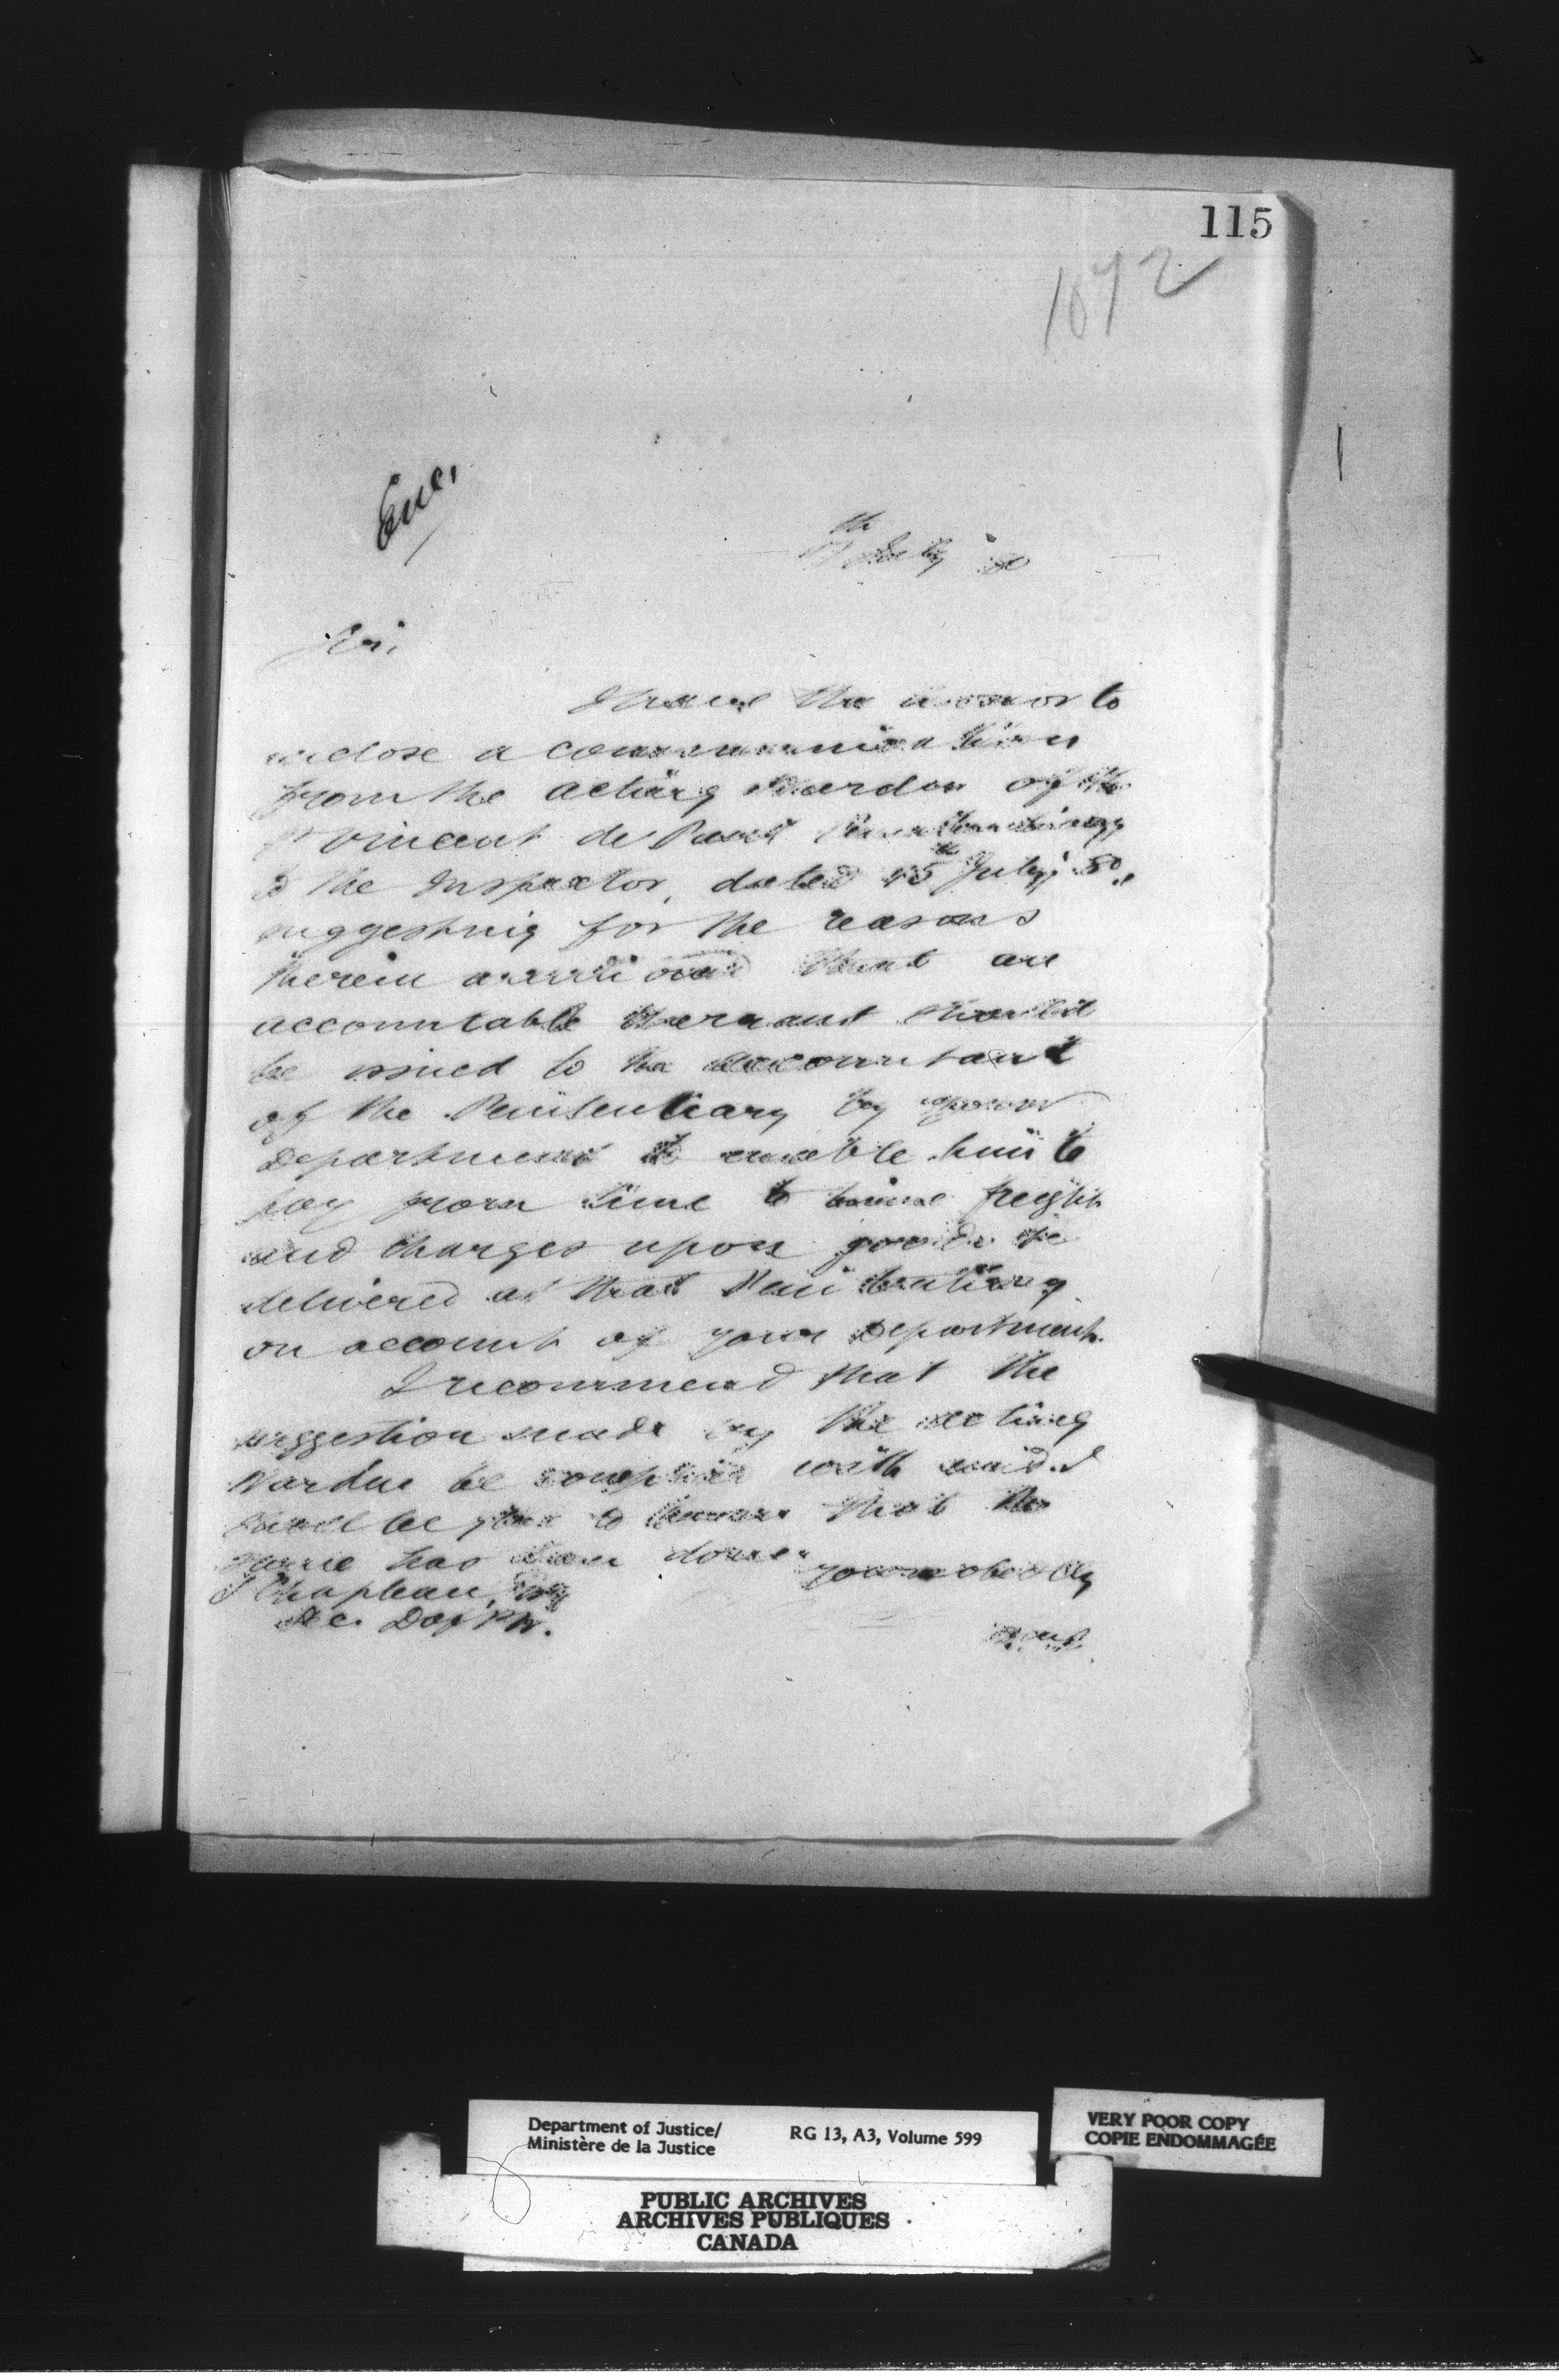 115
1072
Enc.
July '80
Sir,
I have the honor to
enclose a communication
from the acting Warden of the
St Vincent de Paul Penitentiary
to the Inspector, dated 15th July, '80,
suggesting for the reasons
therein mentioned that an
accountable warrant should
be issued to the accountant
of the Penitentiary by your
Department to enable him to
pay from time to time freight
and charges upon goods
delivered at that Penitentiary
on account of your Department.
I recommend that the
suggestion made by the acting
Warden be complied with and I
shall be glad to know that the
same has been done.
Your obed
Chapleau, Esq
Sec. D of P W.
Department of Justice/
Ministère de la Justice
RG 13, A3, Volume 599
VERY POOR COPY
COPIE ENDOMMAGÉE
PUBLIC ARCHIVES
ARCHIVES PUBLIQUES
CANADA